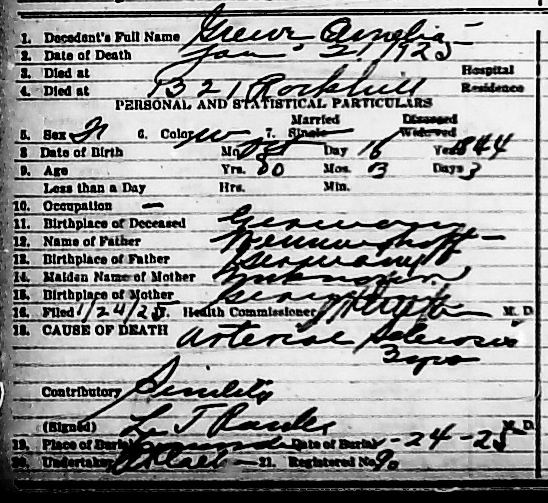 1. Decedent's Full Name Amelia
2. Date of Death Jan 21 1925
3. Died at Hospital
4. Died at 1321 Rockhill Residence
PERSONAL AND STATISTICAL PARTICULARS
Married Divorced
5. Sex F 6. Color W 7. Single Widowed
8 Date of Birth Mo. Oct Day 18 Year 1844
9. Age Yrs. 80 Mos. 3 Days 3
Less than a Day Hrs. Min.
10. Occupation —
11. Birthplace of Deceased Germany
12. Name of Father
13. Birthplace of Father Germany
14. Maiden Name of Mother Unknown
15. Birthplace of Mother Germany
16. Filed 1/24/25 17. Health Commissioner M. D.
18. CAUSE OF DEATH Arterial Sclerosis
3 yrs
Contributory Senility
(Signed) L. J. M. D.
19. Place of Burial Date of Burial 1-24-25
20. Undertaker 21. Registered No. 90